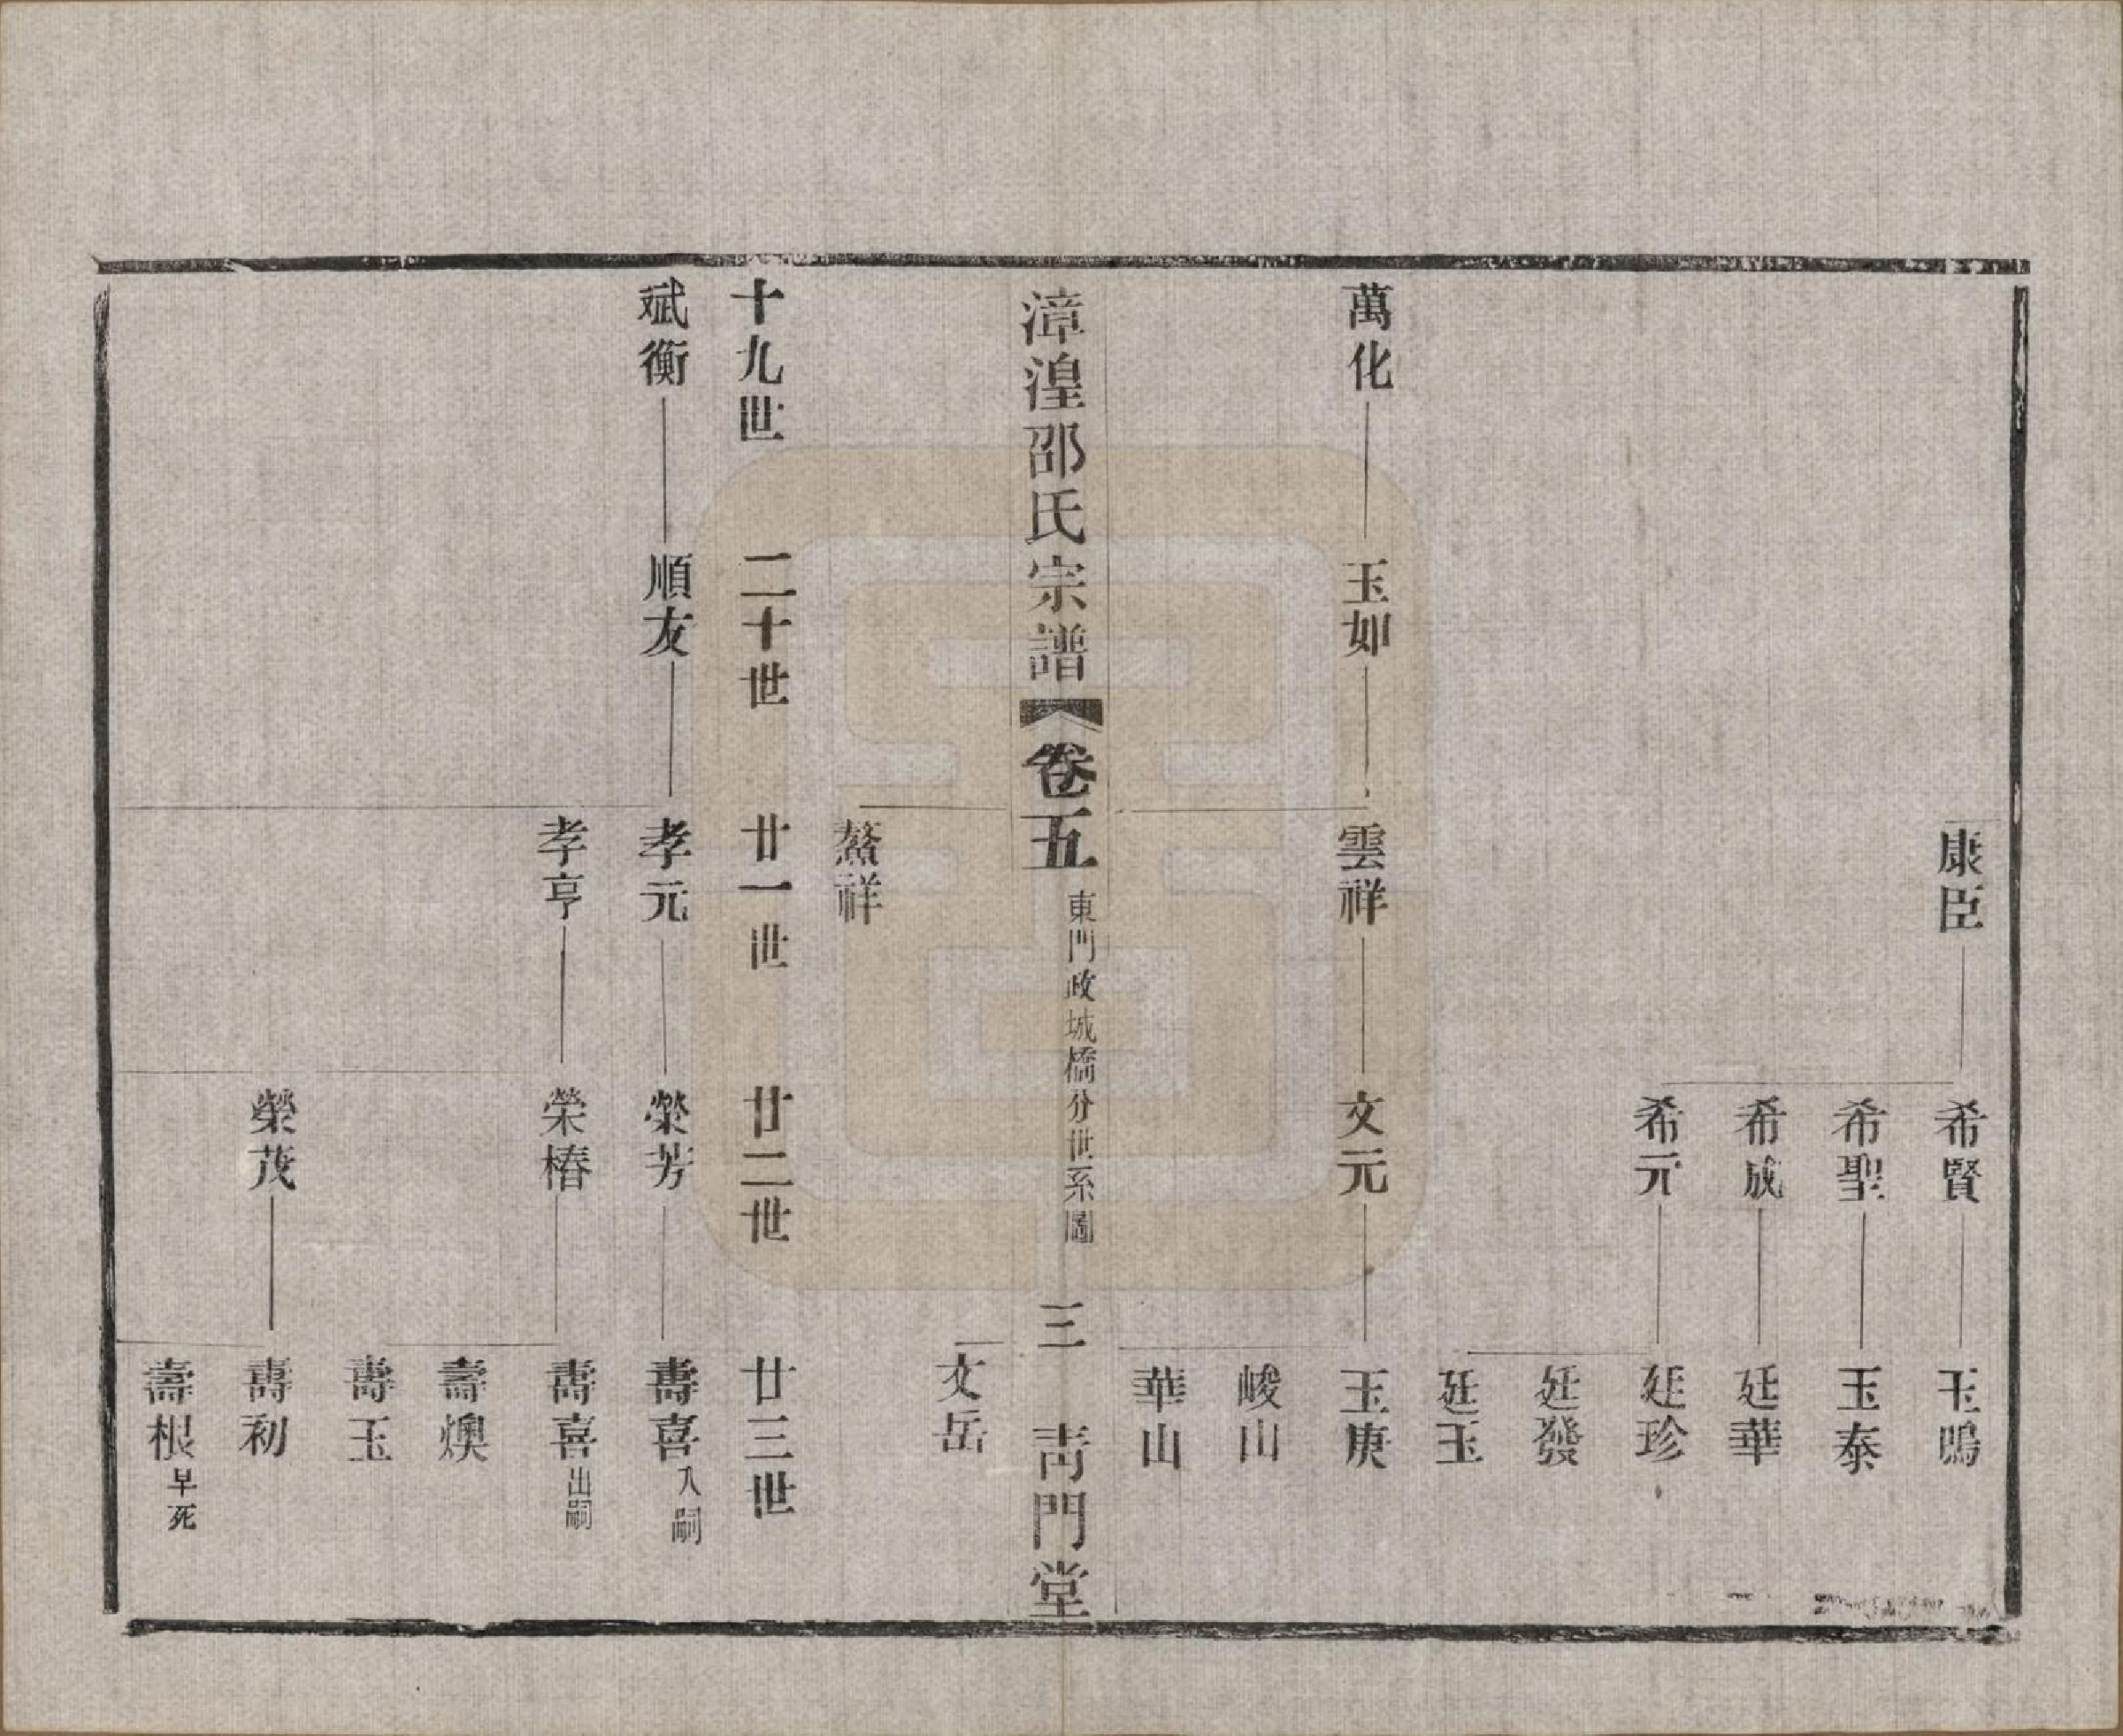 康臣
希賢
玉鳴
希聖
玉泰
希成
廷華
希元
廷珍
廷發
廷玉
萬化
玉如
雲祥
文元
玉庚
峻山
華山
漳湟邵氏宗譜
卷五
東門政城橋分世系圖
三
靑門堂
文岳
鰲祥
十九世
二十世
廿一世
廿二世
廿三世
斌衡
順友
孝元
榮芳
壽喜入嗣
孝亨
榮椿
壽喜出嗣
壽燠
壽玉
榮茂
壽初
壽根早死